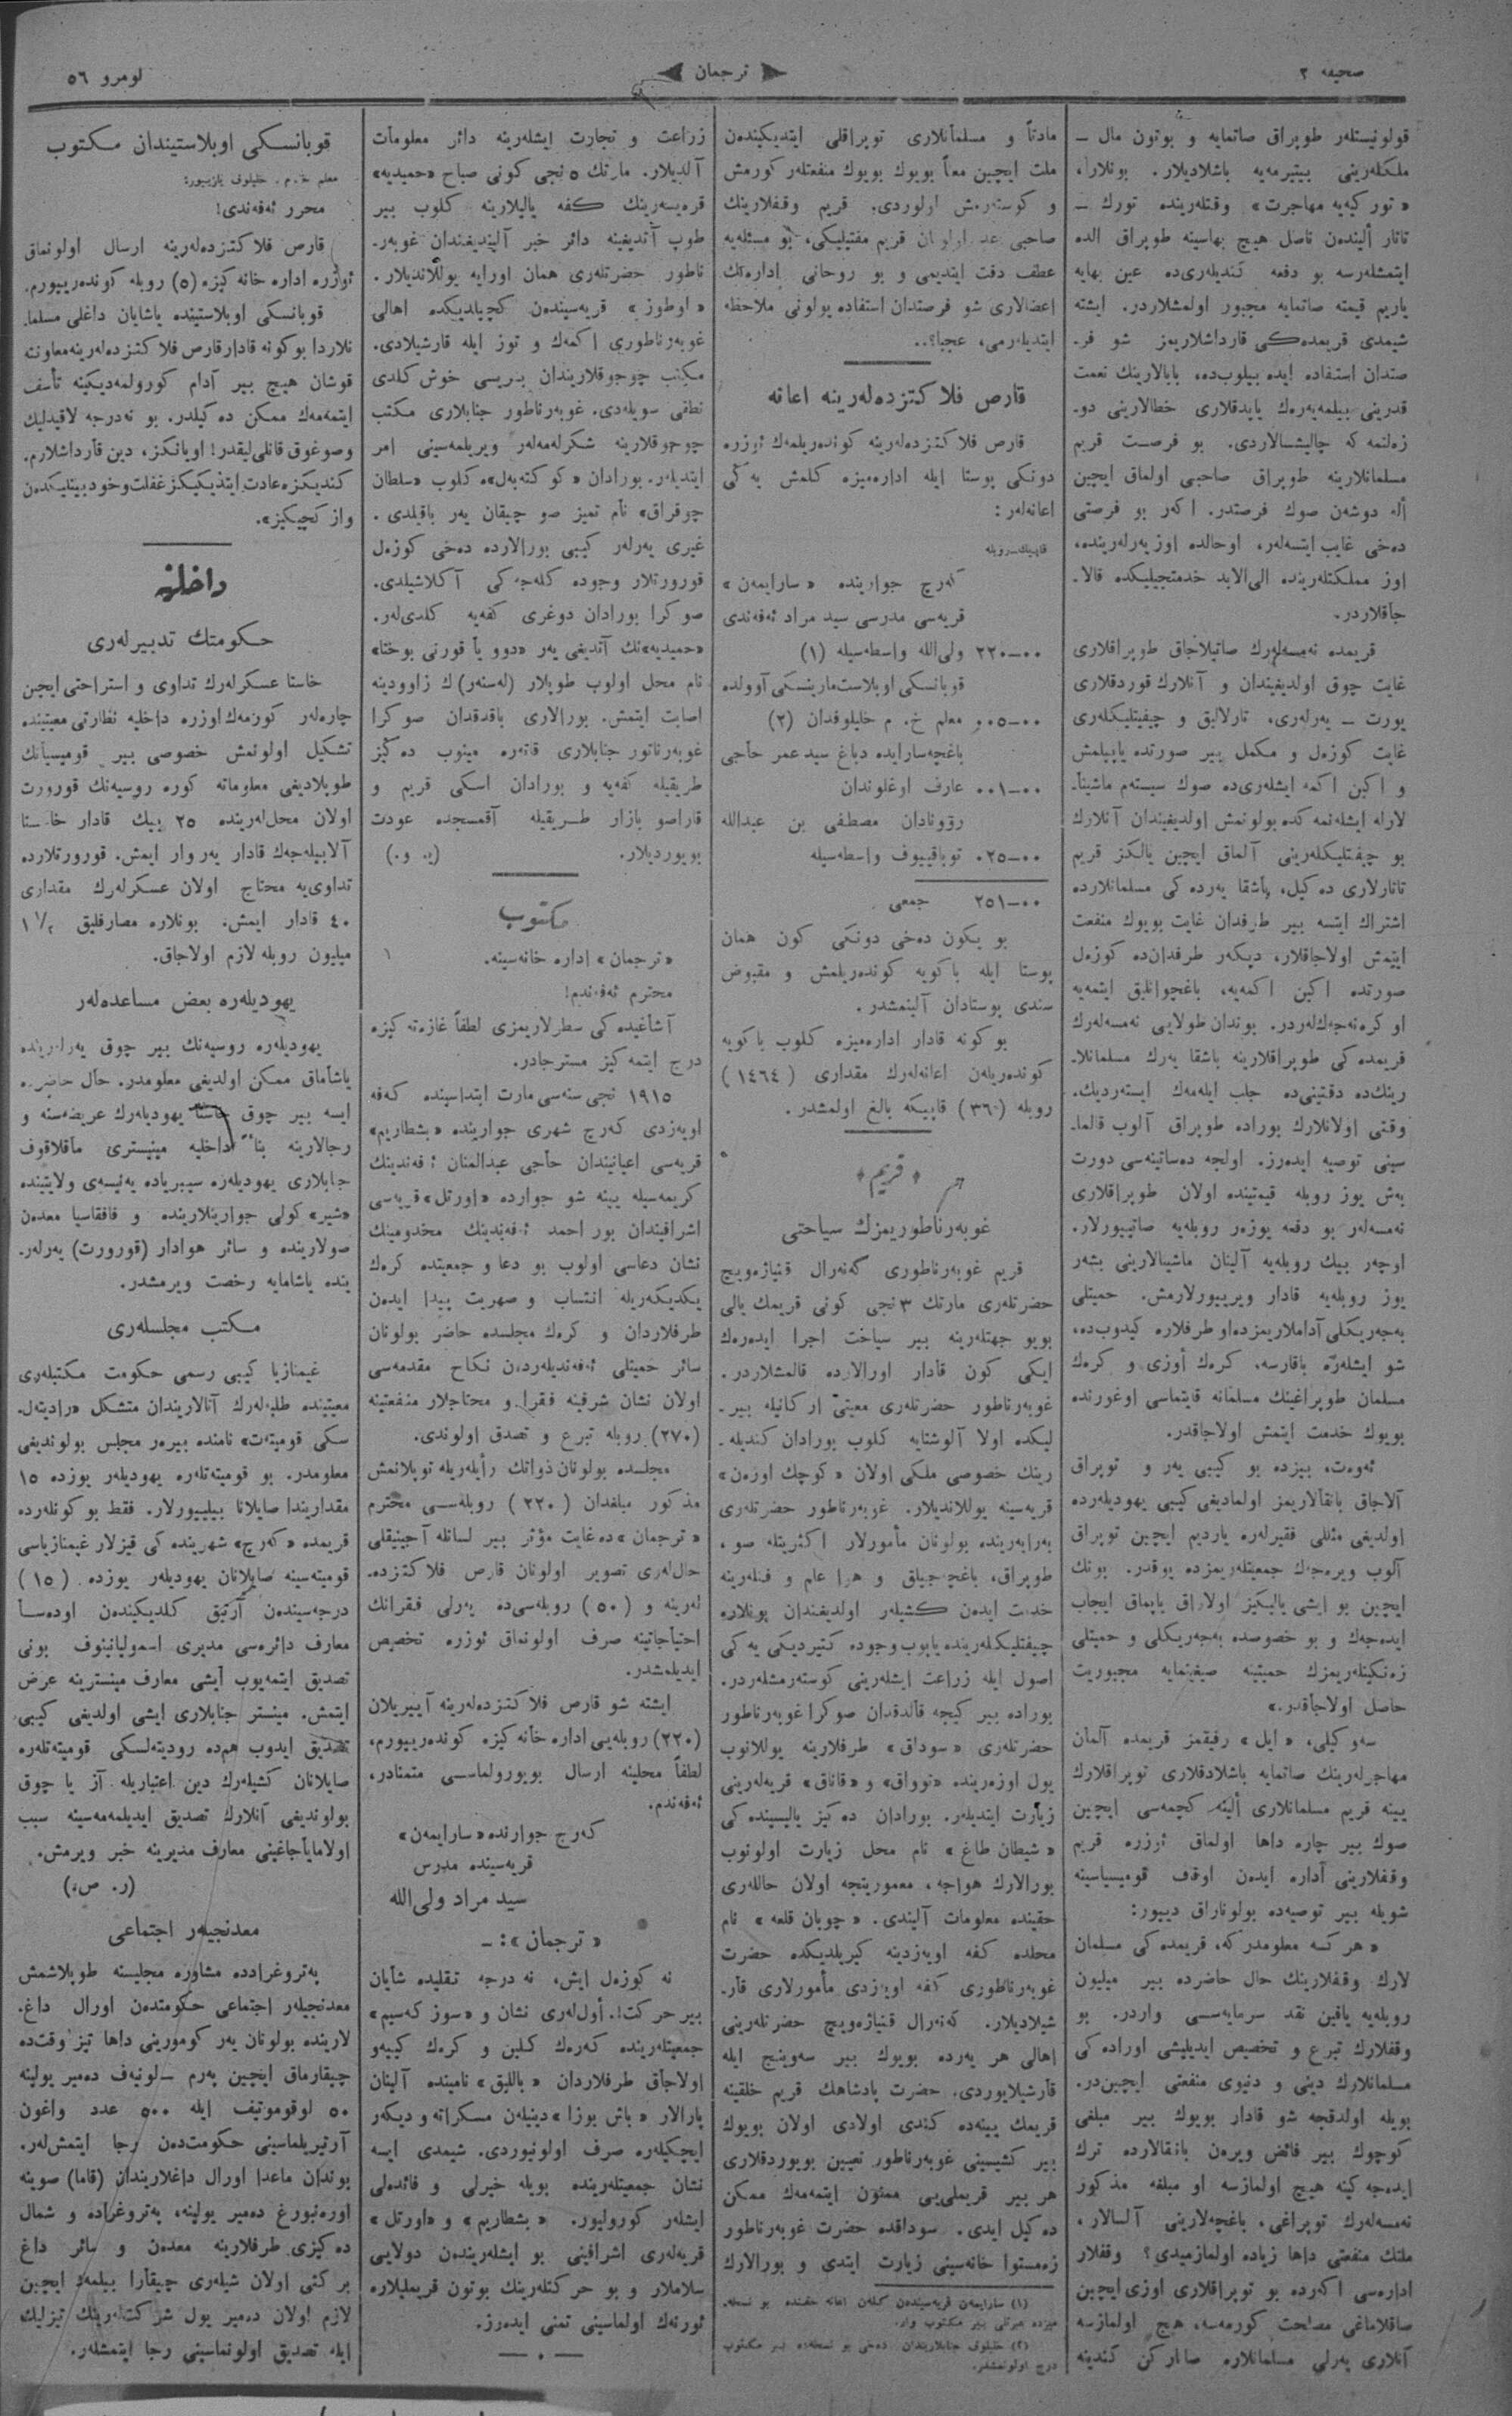 صحیفه ٢
ترجمان
نومرو ٥٦
قولونیستلەر طوپراق صاتمایه و بوتون مال ـ
ملکلەرینی بیتیرمەیه باشلادیلار. بونلار،
« تورکیەیه مهاجرت » وقتلەرینده تورك ـ
تاتار ألیندەن ناصل هیچ بهاسینه طوپراق الده
ایتمشلەرسه بو دفعه کندیلەری‌ده عین بهایه
یاریم قیمته صاتمایه مجبور اولمشلاردر. ایشته
شیمدی قریمدەکی قارداشلاریمز شو فر۔
صتدان استفاده ایده بیلوب‌ده، بابالارینك نعمت
قدرینی بیلمەیەرەك یاپدقلاری خطالارینی دو۔
زەلتمه که چالیشسالاردی. بو فرصت قریم
مسلمانلارینه طوپراق صاحبی اولماق ایچین
ألە دوشەن صوك فرصتدر. اکەر بو فرصتی
دەخی غایب ایتسەلەر، اوحالده اوز یەرلەرینده،
اوز مملکتلەرینده الی‌الابد خدمتجیلیکده قالا۔
جاقلاردر.
قریمده نەمسەلەرك صاتیلاجاق طوپراقلاری
غایت چوق اولدیغیندان و آنلارك قوردقلاری
یورت ـ یەرلەری، تارلالیق و چیفتلیکلەری
غایت کوزەل و مکمل بیر صورتده یاپیلمش
و اکین اکمه ایشلەری‌ده صوك سیستەم ماشینا۔
لارله ایشلەنمه کده بولونمش اولدیغیندان آنلارك
بو چیفتلیکلەرینی آلماق ایچین یالکز قریم
تاتارلاری دەکیل، باشقا یەردەکی مسلمانلارده
اشتراك ایتسه بیر طرفدان غایت بویوك منفعت
ایتمش اولاجاقلار، دیکەر طرفدان‌ده کوزەل
صورتده اکین اکمەیه، باغچوانلیق ایتمەیه
اوکرەنەجەك‌لەردر. بوندان طولایی نەمسەلەرك
قریمدەکی طوپراقلارینه باشقا یەرك مسلمانلا۔
رینك‌ده دقتینی‌ده جلب ایلەمەك ایستەردیك.
وقتی اولانلارك بوراده طوپراق آلوب قالما۔
سینی توصیه ایدەرز. اولجه دەساتینەسی دورت
بەش یوز روبله قیمتینده اولان طوپراقلاری
نەمسەلەر بو دفعه یوزەر روبلەیه صاتیورلار.
اوچەر بیك روبلەیه آلینان ماشینالارینی بشەر
یوز روبلەیه قادار ویرییورلارمش. حمیتلی
بەجەریکلی آداملاریمزدە او طرفلاره کیدوب‌ده،
شو ایشلەرە باقارسه، کرەك أوزی و کرەك
مسلمان طوپراغینك مسلمانه قایتماسی اوغورنده
بویوك خدمت ایتمش اولاجاقدر.
ئەوەت، بیزده بو کیبی یەر و توپراق
آلاجاق بانقالاریمز اولمادیغی کیبی یهودیلەرده
اولدیغی مثللی فقیرلەره یاردیم ایچین توپراق
آلوب ویرەجەك جمعیتلەریمزده یوقدر. بونك
ایچین بو ایشی یالیکیز اولاراق یاپماق ایجاب
ایدەجەك و بو خصوصده بەجەریکلی و حمیتلی
زەنکینلەریمزك حمیتینه صیغینمایه مجبوریت
حاصل اولاجاقدر.»
سەوکیلی، « ایل » رفیقمز قریمده آلمان
مهاجرلەرینك صاتمایه باشلادقلاری توپراقلارك
یینه قریم مسلمانلاری ألینه کچمەسی ایچین
صوك بیر چاره داها اولماق اوزره قریم
وقفلارینی اداره ایدەن اوقاف قومیسیاسینه
شویله بیر توصیەده بولوناراق دییور:
« هر کسه معلومدرکه، قریمدەکی مسلمان
لارك وقفلارینك حال حاضرده بیر میلیون
روبلەیه یاقین نقد سرمایەسی واردر. بو
وقفلارك تبرع و تخصیص ایدیلیشی اورادەکی
مسلمانلارك دینی و دنیوی منفعتی ایچین‌در.
بویله اولدقجه شو قادار بویوك بیر مبلغی
کوچوك بیر فائض ویرەن بانقالارده ترك
ایدەجەکینه هیچ اولمازسه او مبلغه مذکور
نەمسەلەرك توپراغی، باغچەلارینی آلسالار،
ملتك منفعتی داها زیاده اولمازمیدی؟ وقفلار
ادارەسی اکەرده بو توپراقلاری اوزی ایچین
صاقلاماغی مصلحت کورمەسه، هیچ اولمازسه
آنلاری یەرلی مسلمانلاره صاتارکن کندینه
مادتاً و مسلمانلاری توپراقلی ایتدیکیندەن
ملت ایچین معناً بویوك بویوك منفعتلەر کورمش
و کوستەرمش اولوردی. قریم وقفلارینك
صاحبی عد اولونان قریم مفتیلیکی، بو مسئلەیه
عطف دقت ایتدیمی و بو روحانی ادارەنك
اعضالاری شو فرصتدان استفاده یولونی ملاحظه
ایتدیلەرمی، عجبا؟..
قارص فلاکتزدەلەرینه اعانه
قارص فلاکتزدەلەرینه کوندەریلمەك اوزره
دونکی پوستا ایله ادارەمیزه کلمش یەکی
اعانەلەر:
قاپیك ـ روبله
کەرچ جوارینده « سارایمەن »
قریەسی مدرسی سید مراد ئەفەندی
ولی‌الله واسطەسیله (١) ٢٢٠—٠٠
قوبانسکی اوبلاست مارینسکی آوولده
معلم خ. م خلیلوفدان (٢) ٠٠٥—٠٠
باغچەسارایده دباغ سید عمر حاجی
عارف اوغلوندان ٠٠١—٠٠
رؤونادان مصطفی بن عبدالله
توباقییوف واسطەسیله ٠٢٥—٠٠
جمعی ٢٥١—٠٠
بو یکون دەخی دونکی کون همان
پوستا ایله باکویه کوندەریلمش و مقبوض
سندی پوستادان آلینمشدر.
بو کونه قادار ادارەمیزه کلوب باکویه
کوندەریلەن اعانەلەرك مقداری (١٤٦٤)
روبله (٣٦) قاپیکه بالغ اولمشدر.
« قریم »
غوبەرناطوریمزك سیاحتی
قریم غوبەرناطوری گەنەرال قنیاژەویچ
حضرتلەری مارتك ٣ نجی کونی قریمك یالی
بویو جهتلەرینه بیر سیاحت اجرا ایدەرەك
ایکی کون قادار اورالارده قالمشلاردر.
غوبەرناطور حضرتلەری معیتی ارکانیله بیر۔
لیکده اولا آلوشتایه کلوب بورادان کندیلە۔
رینك خصوصی ملکی اولان « کوچك اوزەن »
قریەسینه یوللاندیلار. غوبەرناطور حضرتلەری
بەرابەرینده بولونان مأمورلار اکثریتله صو،
طوپراق، باغچەجیلق و هوا عام و فنلەرینه
خدمت ایدەن کشیلەر اولدیغیندان بونلاره
چیفتلیکلەرینده یاپوب وجوده کتیردیکی یەکی
اصول ایله زراعت ایشلەرینی کوستەرمشلەردر.
بوراده بیر کیجه قالدقدان صوکرا غوبەرناطور
حضرتلەری « سوداق » طرفلارینه یوللانوب
یول اوزەرینده «توواق» و «قاناق» قریەلەرینی
زیارت ایتدیلەر. بورادان دەکیز یالیسیندەکی
« شیطان طاغ » نام محل زیارت اولونوب
بورالارك هواجه، معموریتجه اولان حاللەری
حقینده معلومات آلیندی. « چوبان قلعه » نام
محلده کفه اویەزدینه کیریلدیکده حضرت
غوبەرناطوری کفه اویەزدی مأمورلاری قار۔
شیلادیلار. گەنەرال قنیاژەویچ حضرتلەرینی
اهالی هر یەرده بویوك بیر سەوینج ایله
قارشیلایوردی. حضرت پادشاهك قریم خلقینه
قریمك یینەده کندی اولادی اولان بویوك
بیر کشیسینی غوبەرناطور تعیین بویوردقلاری
هر بیر قریملی‌یی ممنون ایتمەمەك ممکن
دەکیل ایدی. سوداقده حضرت غوبەرناطور
زەمستوا خانەسینی زیارت ایتدی و بورالارك
(١) سارایمەن قریەسیندەن کلەن اعانه حقنده بو نسخە۔
میزده عبرتلی بیر مکتوب وار.
(٢) خلیلوف جنابلاریندان دەخی بو نسخەده بیر مکتوب
درج اولونمشدر.
زراعت و تجارت ایشلەرینه دائر معلومات
آلدیلار. مارتك ٥ نجی کونی صباح «حمیدیه»
قریەسەرینك کفه یالیلارینه کلوب بیر
طوپ آتدیغینه دائر خبر آلیندیغندان غوبەر۔
ناطور حضرتلەری همان اورایه یوللاندیلار.
« اوطوز » قریەسیندەن کچیلدیکده اهالی
غوبەرناطوری اکمەك و توز ایله قارشیلادی.
مکتب چوجوقلاریندان بریسی خوش کلدی
نطقی سویلەدی. غوبەرناطور جنابلاری مکتب
چوجوقلارینه شکرلەمەلەر ویریلمەسینی امر
ایتدیلەر. بورادان « کوکتەبەل»ه کلوب «سلطان
چوقراق» نام تمیز صو چیقان یەر باقیلدی.
غیری یەرلەر کیبی بورالارده دەخی کوزەل
قورورتلار وجوده کلەجەکی آکلاشیلدی.
صوکرا بورادان دوغری کفەیه کلدی‌لەر.
«حمیدیه»نك آتدیغی یەر «دوو یا قورنی بوختا»
نام محل اولوب طوپلار (لەسنەر)ك زاوودینه
اصابت ایتمش. بورالاری باقدقدان صوکرا
غوبەرناتور جنابلاری قاتەره مینوب دەکیز
طریقیله کفەیه و بورادان اسکی قریم و
قاراصو بازار طریقیله آقمسجده عودت
بویوردیلار. (ی. و.)
مکتوب
«ترجمان» اداره خانەسینه.
محترم ئەفەندم!
آشاغیدەکی سطرلاریمزی لطفاً غازەتەکیزه
درج ایتمەکیز مسترجادر.
١٩١٥ نجی سنەسی مارت ابتداسینده کەفه
اویەزدی کەرچ شهری جوارینده «بشطاریم»
قریەسی اعیانیندان حاجی عبدالمنان ئەفەندینك
کریمەسیله یینه شو جوارده «اورتل» قریەسی
اشرافیندان بور احمد ئەفەندینك مخدومینك
نشان دعاسی اولوب بو دعا و جمعیتده کرەك
یکدیگەریله انتساب و صهریت پیدا ایدەن
طرفلاردان و کرەك مجلسده حاضر بولونان
سائر حمیتلی ئەفەندیلەردەن نکاح مقدمەسی
اولان نشان شرفینه فقرا و محتاجلار منفعتینه
(٢٧٠) روبله تبرع و تصدق اولوندی.
مجلسده بولونان ذواتك رأیلەریله توپلانمش
مذکور مبلغدان (٢٢٠) روبلەسی محترم
« ترجمان » ده غایت مؤثر بیر لسانله آجینیقلی
حال‌لەری تصویر اولونان قارص فلاکتزدە۔
لەرینه و (٥٠) روبلەسی‌ده یەرلی فقرانك
احتیاجاتینه صرف اولونماق ئوزره تخصیص
ایدیلمشدر.
ایشته شو قارص فلاکتزدەلەرینه آییریلان
(٢٢٠) روبلەیی اداره خانەکیزه کوندەرییورم،
لطفاً محلینه ارسال بویورولماسی متمنادر،
ئەفەندم.
کەرچ جوارنده «سارایمەن»
قریەسینده مدرس
سید مراد ولی‌الله
« ترجمان »: ـ
نه کوزەل ایش، نه درجه تقلیده شأیان
بیر حرکت!. أول‌لەری نشان و «سوز کەسیم»
جمعیتلەرینده کەرەك کلین و کرەك کییەو
اولاجاق طرفلاردان « باللیق » نامینده آلینان
پارالار « باش بوزا » دینیلەن مسکراته و دیکەر
ایچکیلەره صرف اولونیوردی. شیمدی ایسه
نشان جمعیتلەرینده بویله خیرلی و فائدەلی
ایشلەر کورولیور. « بشطاریم » و «اورتل»
قریەلەری اشرافینی بو ایشلەریندەن دولایی
سلاملار و بو حرکتلەرینك بوتون قریملیلاره
ئورنەك اولماسینی تمنی ایدەرز.
قوبانسکی اوبلاستیندان مکتوب
معلم خ. م. خلیلوف یازییور:
محرر ئەفەندی!
قارص فلاکتزدەلەرینه ارسال اولونماق
ئوزره اداره خانەکیزه (٥) روبله کوندەرییورم.
قوبانسکی اوبلاستینده یاشایان داغلی مسلما۔
نلاردا بو کونه قادار قارص فلاکتزدەلەرینه معاونته
قوشان هیچ بیر آدام کورولمەدیکینه تأسف
ایتمەمەك ممکن دەکیلدر. بو نەدرجه لاقیدلیك
وصوغوق قانلی‌لیقدر! اویانکز، دین قارداشلارم،
کندیکزه عادت ایتدیکیکز غفلت و خودبینلیکدەن
واز کچیکیز».
داخلیه
حکومتك تدبیرلەری
خاستا عسکرلەرك تداوی و استراحتی ایچین
چارەلەر کورمەك اوزره داخلیه نظارتی معیتینده
تشکیل اولونمش خصوصی بیر قومیسیانك
طوپلادیغی معلوماته کوره روسیەنك قورورت
اولان محل‌لەرینده ٢٥ بیك قادار خاستا
آلابیلەجەك قادار یەر وار ایمش. قورورتلارده
تداوی‌یه محتاج اولان عسکرلەرك مقداری
٤٠ قادار ایمش. بونلاره مصارفلیق ١ ١/٢
میلیون روبله لازم اولاجاق.
یهودیلەره بعض مساعدەلەر
یهودیلەره روسیەنك بیر چوق یەرلەرینده
یاشاماق ممکن اولدیغی معلومدر. حال حاضرده
ایسه بیر چوق خاستا یهودیلەرك عریضەسنه و
رجالارینه بناءً داخلیه مینیستری ماقلاقوف
جنابلاری یهودیلەره سیبریاده یەنیسەی ولایتینده
«شیر» کولی جوارینلارینده و قافقاسیا معدەن
صولارینده و سائر هوادار (قورورت) یەرلە۔
ینده یاشامایه رخصت ویرمشدر.
مکتب مجلسلەری
غیمنازیا کیبی رسمی حکومت مکتبلەری
معیتینده طلبەلەرك آنالاریندان متشکل «رادیتەل۔
سکی قومیتەت» نامنده بیرەر مجلس بولوندیغی
معلومدر. بو قومیتەتلەره یهودیلەر یوزده ١٥
مقداریندا صایلانا بیلییورلار. فقط بو کونلەرده
قریمده «کەرچ» شهریندەکی قیزلار غیمنازیاسی
قومیتەسینه صایلانان یهودیلەر یوزده (١٥)
درجەسیندەن آرتیق کلدیکیندەن اودەسا
معارف دائرەسی مدیری اسمولیانینوف بونی
تصدیق ایتمەیوب ایشی معارف مینیسترینه عرض
ایتمش. مینستر جنابلاری ایشی اولدیغی کیبی
تصدیق ایدوب هم‌ده رودیتەلسکی قومیتەتلەره
صایلانان کشیلەرك دین اعتباریله آز یا چوق
بولوندیغی آنلارك تصدیق ایدیلمەمەسینه سبب
اولامایاجاغینی معارف مدیرینه خبر ویرمش.
(ر. ص.)
معدنجیلەر اجتماعی
پەتروغرادده مشاوره مجلیسنه طوپلاشمش
معدنجیلەر اجتماعی حکومتدەن اورال داغ۔
لارینده بولونان یەر کومورینی داها تیز وقت‌ده
چیقارماق ایچین پەرم ـ لونیەف دەمیر یولینه
٥٠ لوقوموتیف ایله ٥٠٠ عدد واغون
آرتیریلماسینی حکومت‌دەن رجا ایتمش‌لەر.
بوندان ماعدا اورال داغلاریندان (قاما) صوینه
اورەنبورغ دەمیر یولینه، پەتروغراده و شمال
دەکیزی طرفلارینه معدەن و سائر داغ
برکتی اولان شیلەری چیقارا بیلمەك ایچین
لازم اولان دەمیر یول شرکتلەرینك تیزلیك
ایله تصدیق اولونماسینی رجا ایتمشلەر.